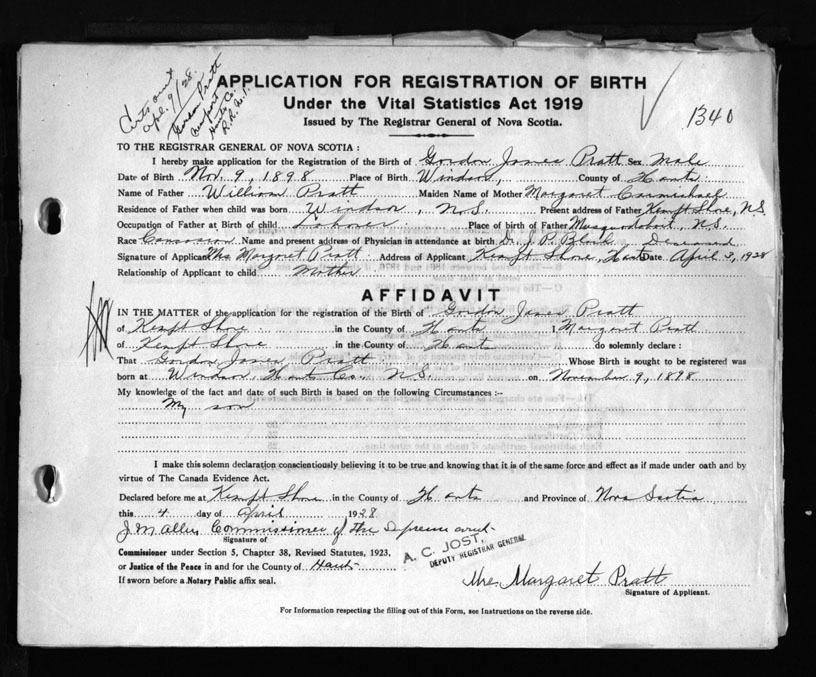 apl. 9/28
Pratt
Hants Co.
APPLICATION FOR REGISTRATION OF BIRTH
Under the Vital Statistics Act 1919
Issued by The Registrar General of Nova Scotia.
1340
TO THE REGISTRAR GENERAL OF NOVA SCOTIA :
I hereby make application for the Registration of the Birth of Gordon James Pratt Sex Male
Date of Birth Nov. 9, 1898 Place of Birth Windsor, County of Hants
Name of Father William Pratt Maiden Name of Mother Margaret Carmichael
Residence of Father when child was born Windsor, N.S. Present address of Father Kempt Shore, N.S.
Occupation of Father at Birth of child Laborer Place of birth of Father Musquodoboit, N.S.
Race Name and present address of Physician in attendance at birth Dr. J. P. Black, Deceased
Signature of Applicant Mrs Margaret Pratt Address of Applicant Kempt Shore, Hants Date April 3, 1928
Relationship of Applicant to child Mother
AFFIDAVIT
IN THE MATTER of the application for the registration of the Birth of Gordon James Pratt
of Kempt Shore in the County of Hants I Margaret Pratt
of Kempt Shore in the County of Hants do solemnly declare :
That Gordon James Pratt Whose Birth is sought to be registered was
born at Windsor Hants Co. N.S. on November 9, 1898
My knowledge of the fact and date of such Birth is based on the following Circumstances :-
My son
I make this solemn declaration conscientiously believing it to be true and knowing that it is of the same force and effect as if made under oath and by
virtue of The Canada Evidence Act.
Declared before me at Kempt Shore in the County of Hants and Province of Nova Scotia
this 4 day of April 1928
J M Allen Commissioner of the Supreme Court
Signature of
Commissioner under Section 5, Chapter 38, Revised Statutes, 1923,
or Justice of the Peace in and for the County of Hants
If sworn before a Notary Public affix seal.
A. C. JOST,
DEPUTY REGISTRAR GENERAL
Mrs. Margaret Pratt
Signature of Applicant.
For Information respecting the filling out of this Form, see Instructions on the reverse side.